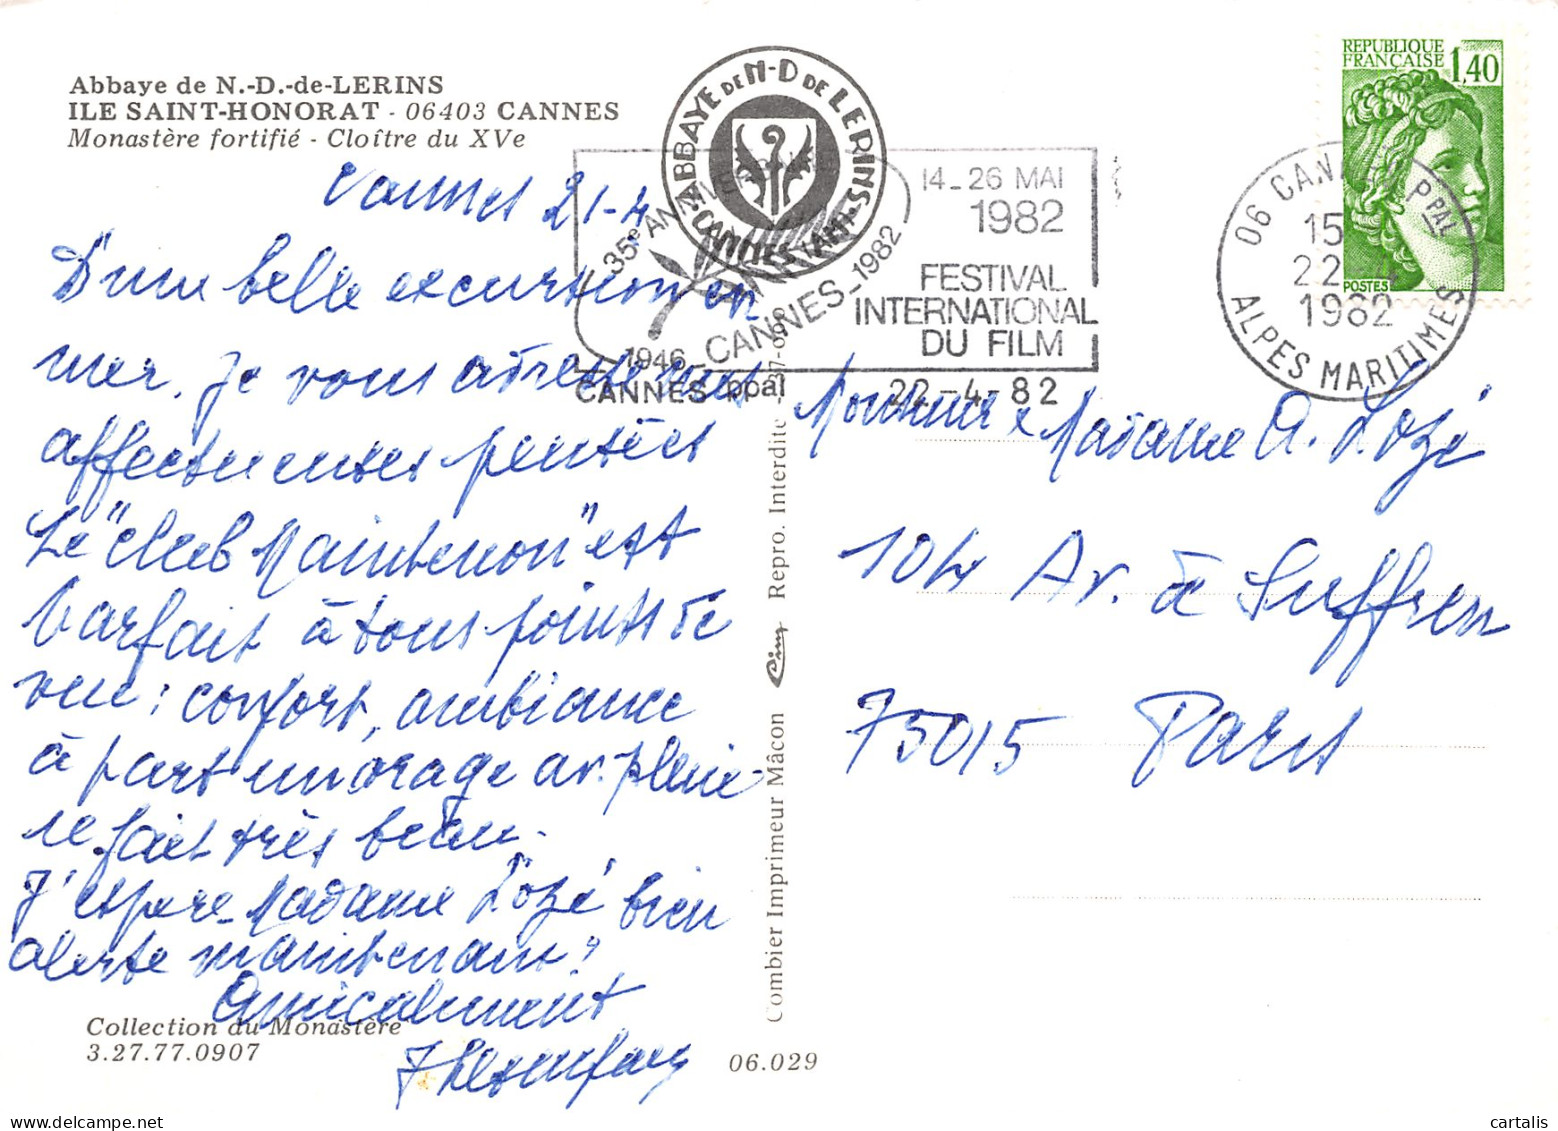 Abbaye de N.-D.-de-LERINS
ILE SAINT-HONORAT - 06403 CANNES
Monastère fortifié - Cloître du XVe
Cannes 21-4
D'une belle excursion en
mer, je vous adresse mes
affectueuses pensées
Le "Club Maintenon" est
parfait à tous points de
vue : confort, ambiance
à part un orage av. pluie
le fait très beau.
J'espère Madame Lozé bien
alerte maintenant?
Amicalement
Collection du Monastère
3.27.77.0907
06.029
Combier Imprimeur Mâcon Cim Repro. Interdite
ABBAYE DE N-D DE LERINS
CANNES (AM)
35e ANNIVERSAIRE
1946_CANNES_1982
14_26 MAI
1982
FESTIVAL
INTERNATIONAL
DU FILM
CANNES ppal
22-4-82
06 CANNES PPAL
15
22-4
1982
ALPES MARITIMES
REPUBLIQUE
FRANÇAISE
1,40
POSTES
Monsieur & Madame A. Lozé
104 Av. de Suffren
75015 Paris
cartalis